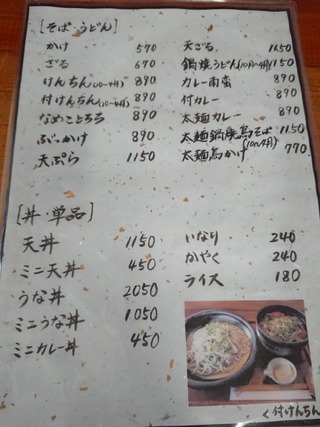 [そば・うどん]
かけ 570
ざる 670
けんちん(10〜4月) 890
付けんちん(10〜4月) 890
なめことろろ 890
ぶっかけ 890
天ぷら 1150
天ざる 1150
鍋焼うどん(10月〜4月) 1150
カレー南蛮 890
付カレー 890
太麺カレー 890
太麺鍋焼鳥そば 1150
(10〜4月)
太麺鳥かけ 770
[丼・単品]
天丼 1150
ミニ天丼 450
うな丼 2050
ミニうな丼 1050
ミニカレー丼 450
いなり 240
かやく 240
ライス 180
く付けんちん